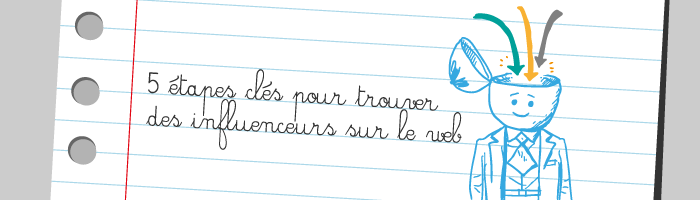 5 étapes clés pour trouver
des influenceurs sur le web